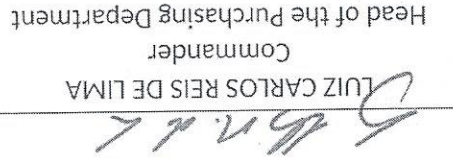 LUIZ CARLOS REIS DE LIMA
Commander
Head of the Purchasing Department